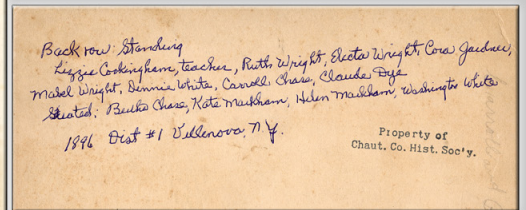 Back row: Standing
Lizzie Cookingham, teacher, Ruth Wright, Electa Wright, Cora Gardner,
Mabel Wright, Dennie White, Carroll Chase, Claude Dye
Seated: Burke Chase, Kate Markham, Helen Markham, Washington White
1896 Dist #1 Villenova, N.Y.
Property of
Chaut. Co. Hist. Soc'y.